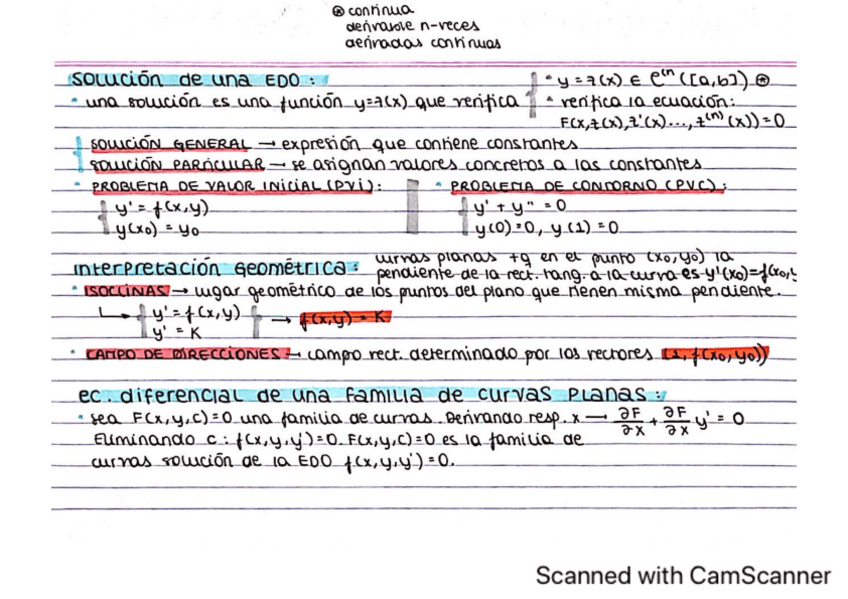 ⊛ continua
derivable n-veces
derivadas continuas
solución de una EDO:
· una solución es una función y=z(x) que verifica { · y = z(x) ∈ C^(n) ([a,b]) ⊛
· verifica la ecuación:
F(x,z(x),z'(x)...,z^(n)(x))=0
SOLUCIÓN GENERAL → expresión que contiene constantes
SOLUCIÓN PARTICULAR → se asignan valores concretos a las constantes
· PROBLEMA DE VALOR INICIAL (PVI): · PROBLEMA DE CONTORNO (PVC):
y' = f(x,y) y' + y'' = 0
y(x0) = y0 y(0)=0, y(1)=0
interpretación geométrica: curvas planas tq en el punto (x0,y0) la
pendiente de la rect. tang. a la curva es y'(x0)=f(x0,y
· ISOCLINAS → lugar geométrico de los puntos del plano que tienen misma pendiente.
↳ { y' = f(x,y) } → f(x,y) = K
y' = K
· CAMPO DE DIRECCIONES → campo rect. determinado por los vectores (1, f(x0,y0))
ec. diferencial de una familia de curvas planas:
· sea F(x,y,c)=0 una familia de curvas. Derivando resp. x → ∂F/∂x + ∂F/∂x y' = 0
Eliminando c: f(x,y,y')=0. F(x,y,c)=0 es la familia de
curvas solución de la EDO f(x,y,y')=0.
Scanned with CamScanner